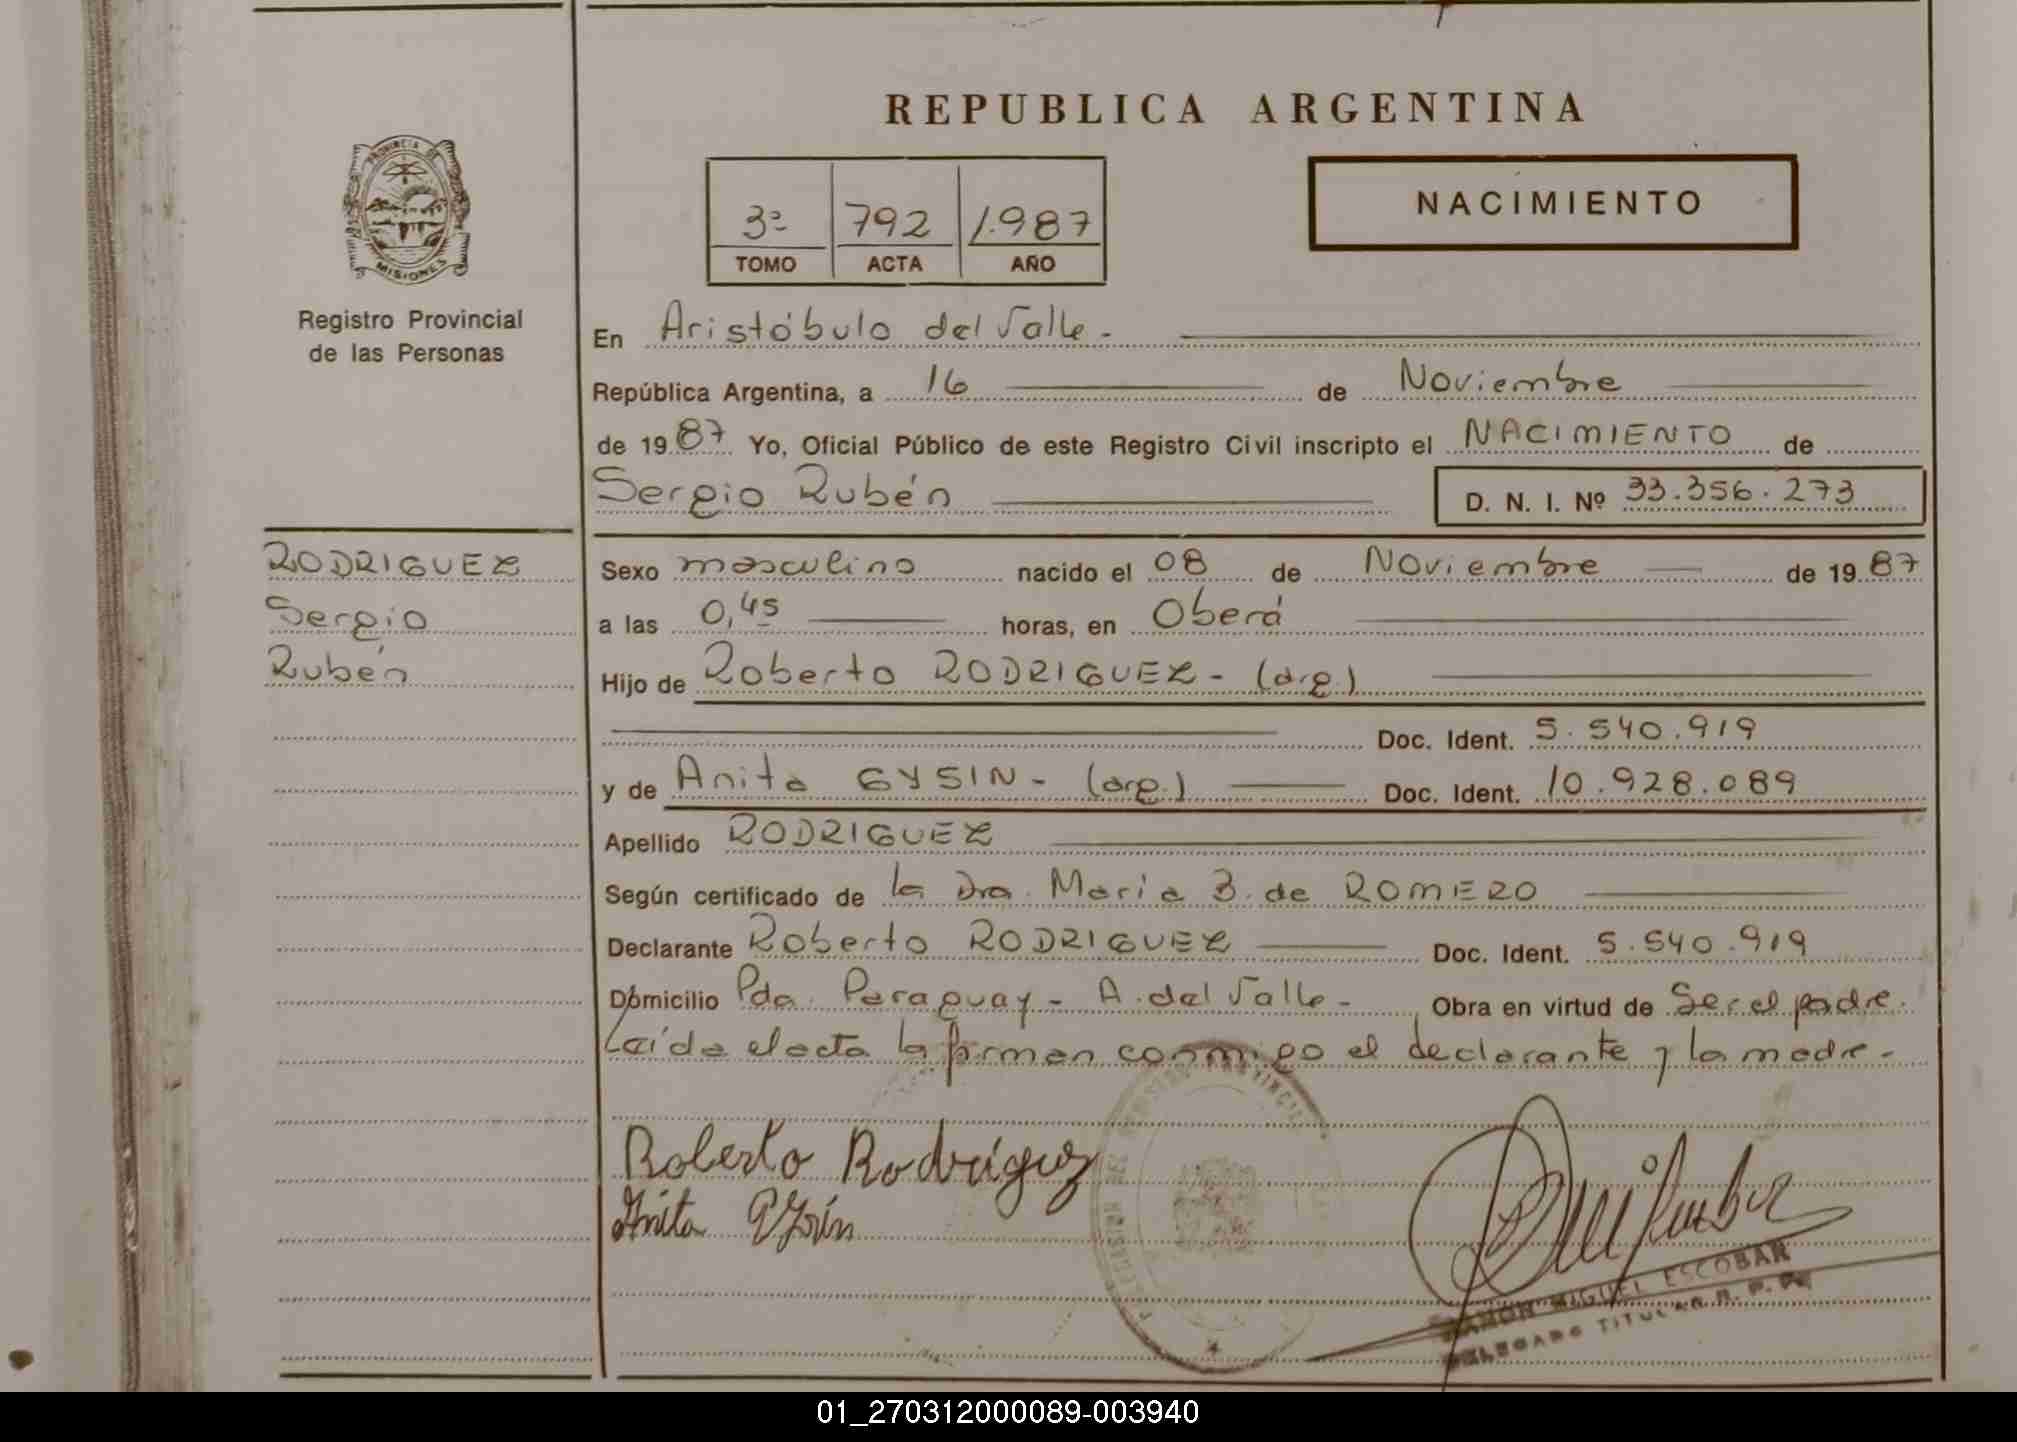 REPUBLICA ARGENTINA
PROVINCIA DE
MISIONES
Registro Provincial
de las Personas
3º 792 1.987
TOMO ACTA AÑO
NACIMIENTO
En Aristóbulo del Valle.-
República Argentina, a 16 de Noviembre
de 1987 Yo, Oficial Público de este Registro Civil inscripto el NACIMIENTO de
Sergio Rubén
D. N. I. Nº 33.356.273
RODRIGUEZ
Sergio
Rubén
Sexo masculino nacido el 08 de Noviembre de 1987
a las 0,45 horas, en Oberá
Hijo de Roberto RODRIGUEZ - (arg.)
Doc. Ident. 5.540.919
y de Anita GYSIN - (arg.) Doc. Ident. 10.928.089
Apellido RODRIGUEZ
Según certificado de la Dra. María B. de ROMERO
Declarante Roberto RODRIGUEZ Doc. Ident. 5.540.919
Domicilio Pda. Paraguay - A. del Valle - Obra en virtud de Ser el padre.
Leída el acta la firman conmigo el declarante y la madre.-
Roberto Rodríguez
Anita Gysin
RAMON MIGUEL ESCOBAR
DELEGADO TITULAR R. P. P.
01_270312000089-003940